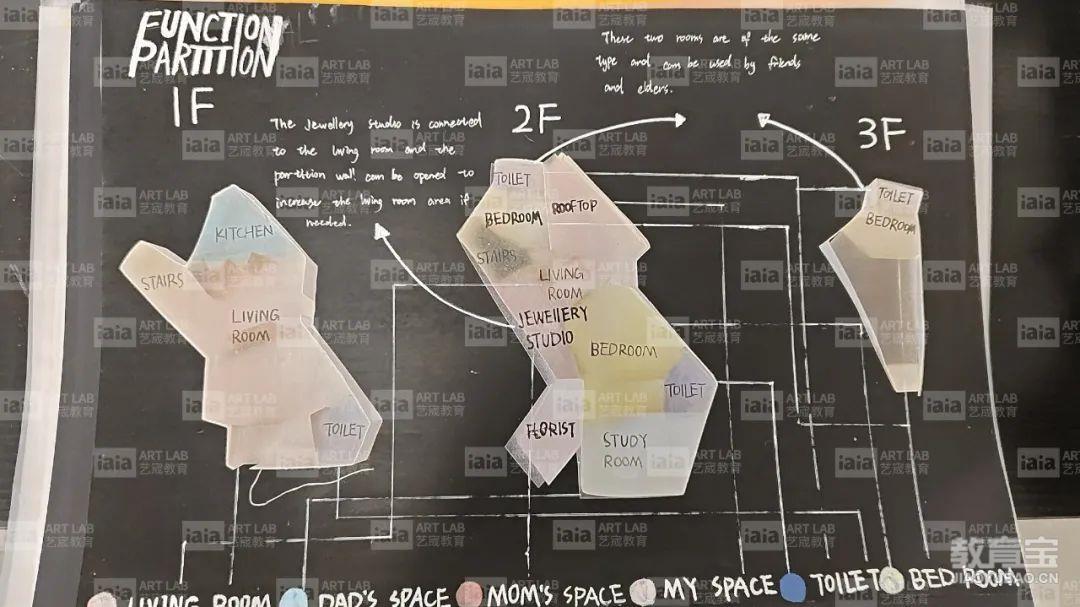 FUNCTION
PARTITION
1F
The Jewellery studio is connected
to the living room and the
partition wall can be opened to
increase the living room area if
needed.
2F
These two rooms are of the same
type and can be used by friends
and elders.
3F
KITCHEN
STAIRS
LIVING
ROOM
TOILET
TOILET
BEDROOM
ROOFTOP
STAIRS
LIVING
ROOM
JEWELLERY
STUDIO
BEDROOM
TOILET
FLORIST
STUDY
ROOM
TOILET
BEDROOM
LIVING ROOM
DAD'S SPACE
MOM'S SPACE
MY SPACE
TOILET
BED ROOM
iaia ART LAB
艺宬教育
教育宝